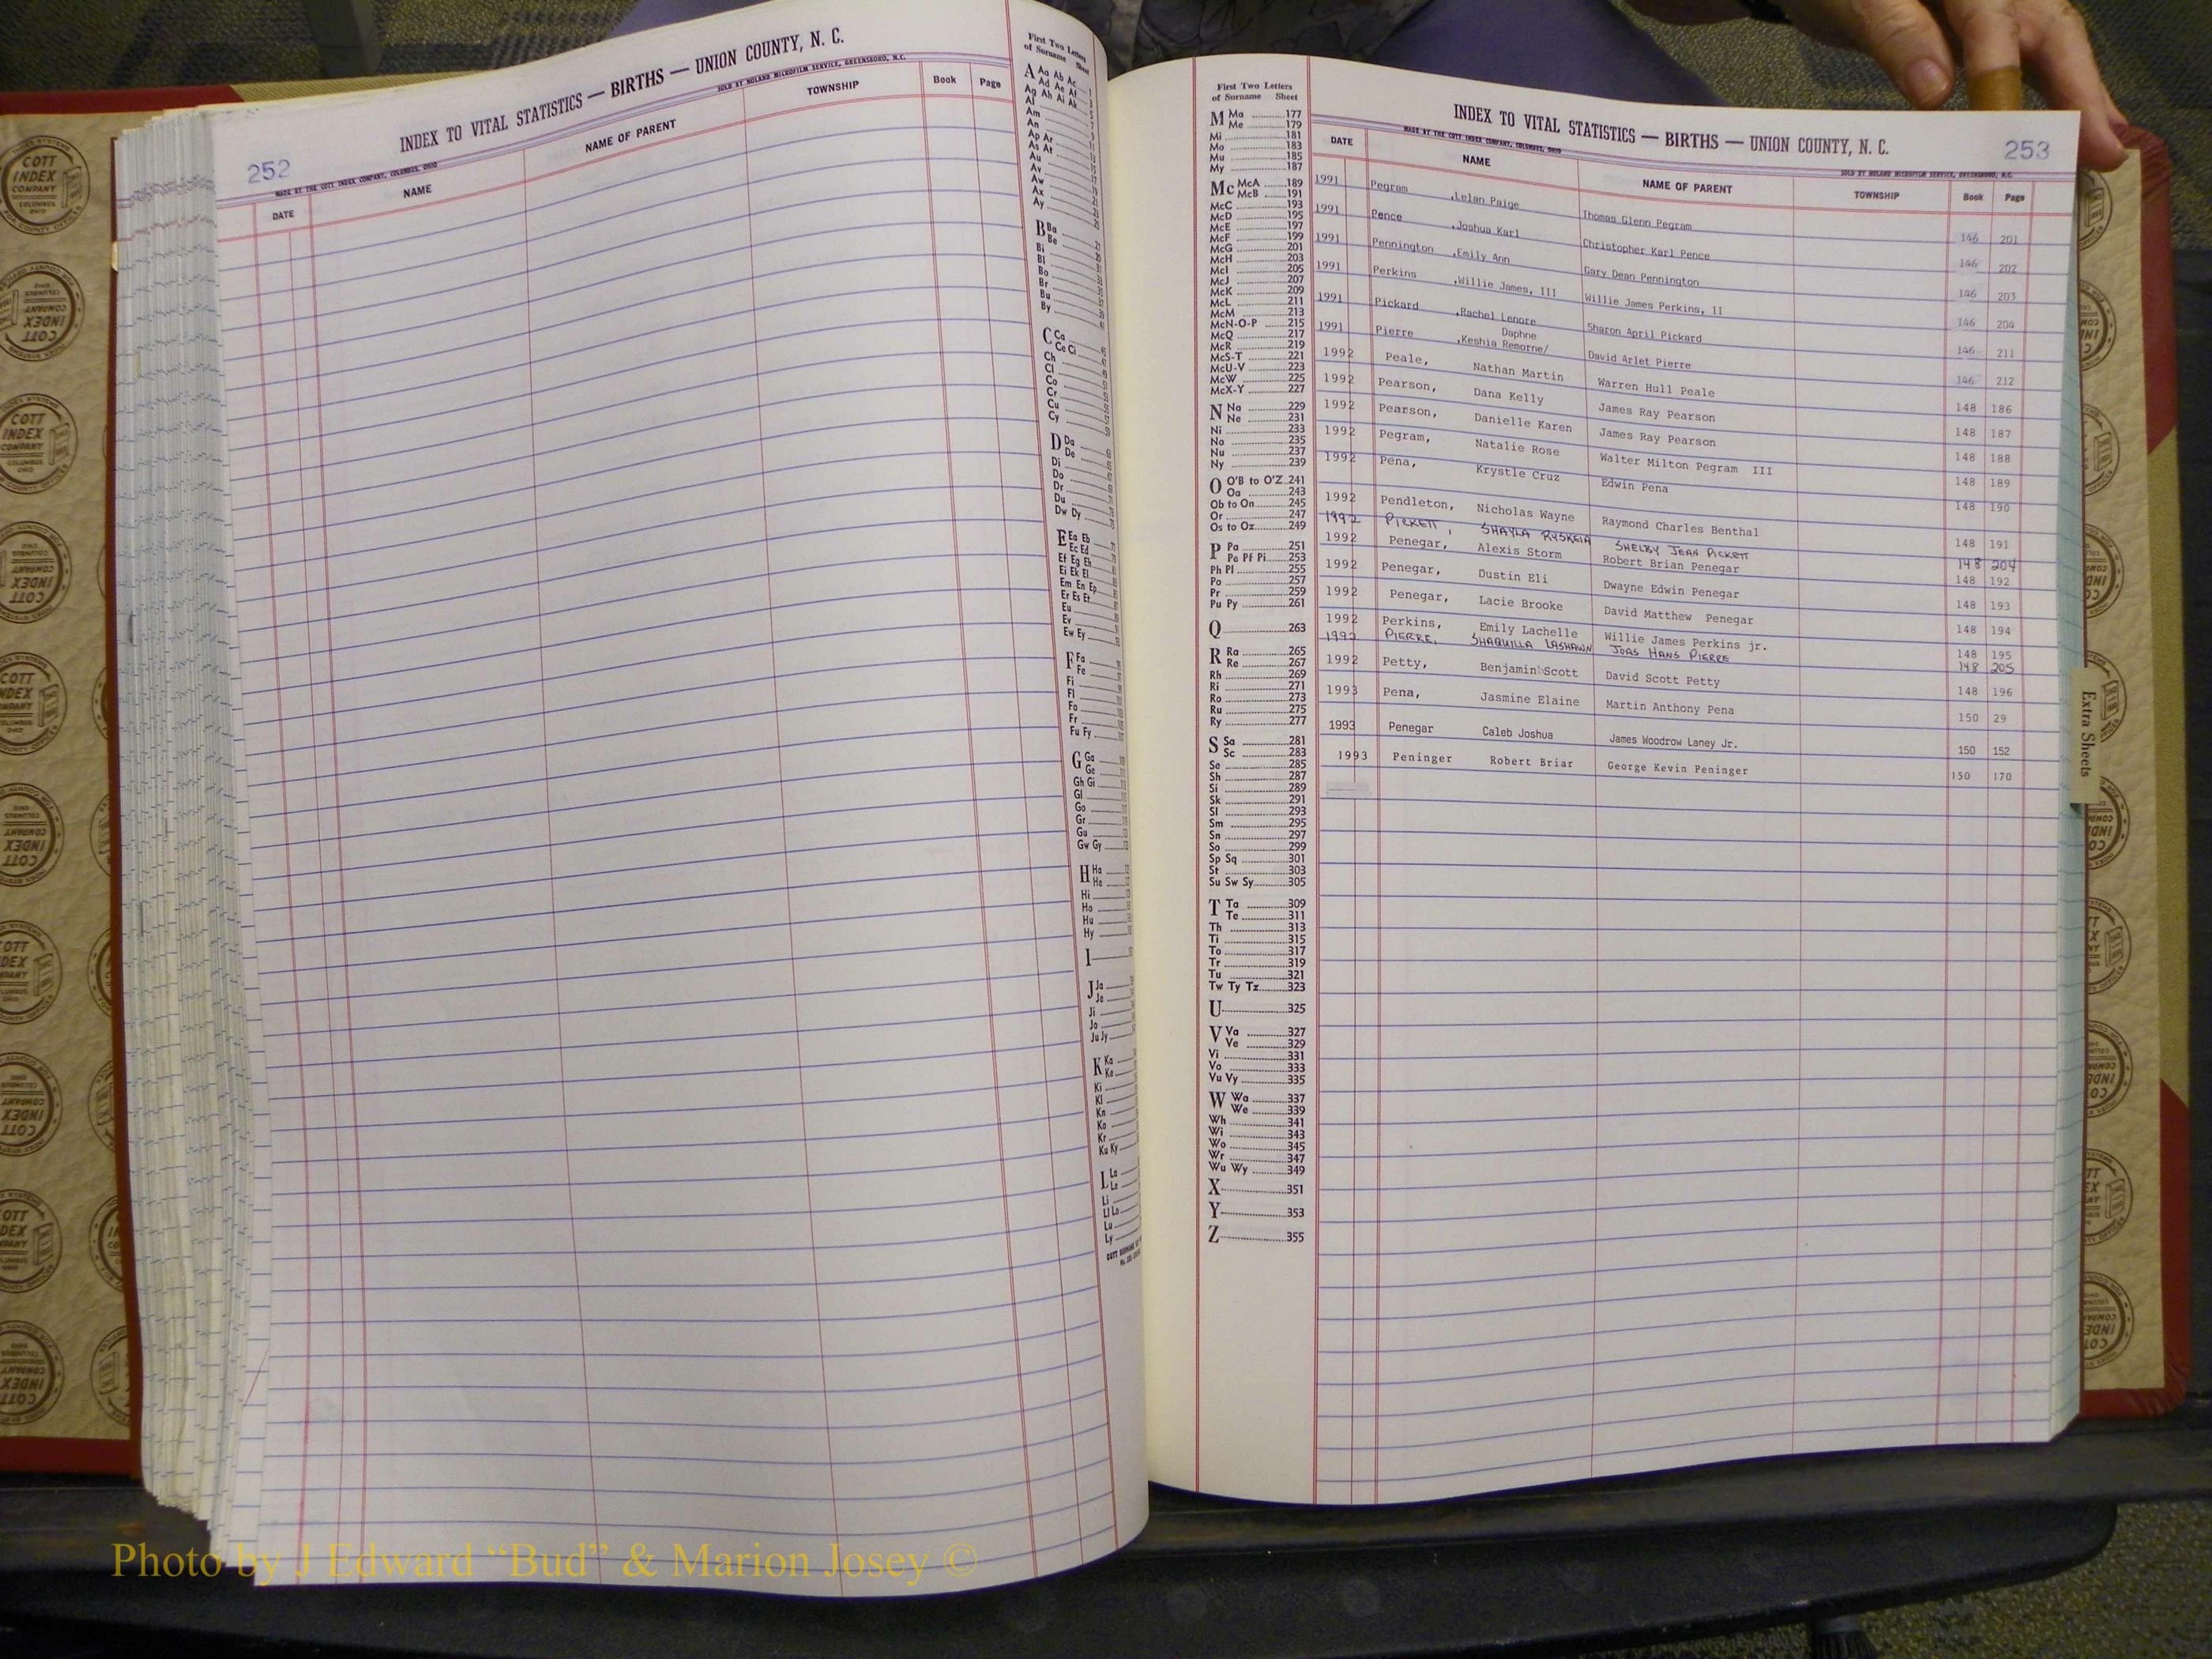 252
INDEX TO VITAL STATISTICS — BIRTHS — UNION COUNTY, N. C.
MADE BY THE COTT INDEX COMPANY, COLUMBUS, OHIO
SOLD BY NOLAND MICROFILM SERVICE, GREENSBORO, N.C.
DATE NAME NAME OF PARENT TOWNSHIP Book Page
First Two Letters
of Surname Sheet
A Aa Ab Ac
Ad Ae Af
Ag Ah Ai Ak
Al
Am
An
Ap Ar
As At
Au
Av
Aw
Ax
Ay
B Ba
Be
Bi
Bl
Bo
Br
Bu
By
C Ca
Ce Ci
Ch
Cl
Co
Cr
Cu
Cy
D Da
De
Di
Do
Dr
Du
Dw Dy
E Ea Eb
Ec Ed
Ef Eg Eh
Ei Ek El
Em En Ep
Er Es Et
Eu
Ev
Ew Ey
F Fa
Fe
Fi
Fl
Fo
Fr
Fu Fy
G Ga
Ge
Gh Gi
Gl
Go
Gr
Gu
Gw Gy
H Ha
He
Hi
Ho
Hu
Hy
I
J Ja
Je
Ji
Jo
Ju Jy
K Ka
Ke
Ki
Kl
Kn
Ko
Kr
Ku Ky
L La
Le
Li
Ll Lo
Lu
Ly
First Two Letters
of Surname Sheet
M Ma 177
Me 179
Mi 181
Mo 183
Mu 185
My 187
Mc McA 189
McB 191
McC 193
McD 195
McE 197
McF 199
McG 201
McH 203
McI 205
McJ 207
McK 209
McL 211
McM 213
McN-O-P 215
McQ 217
McR 219
McS-T 221
McU-V 223
McW 225
McX-Y 227
N Na 229
Ne 231
Ni 233
No 235
Nu 237
Ny 239
O O'B to O'Z 241
Oa 243
Ob to On 245
Or 247
Os to Oz 249
P Pa 251
Pe Pf Pi 253
Ph Pl 255
Po 257
Pr 259
Pu Py 261
Q 263
R Ra 265
Re 267
Rh 269
Ri 271
Ro 273
Ru 275
Ry 277
S Sa 281
Sc 283
Se 285
Sh 287
Si 289
Sk 291
Sl 293
Sm 295
Sn 297
So 299
Sp Sq 301
St 303
Su Sw Sy 305
T Ta 309
Te 311
Th 313
Ti 315
To 317
Tr 319
Tu 321
Tw Ty Tz 323
U 325
V Va 327
Ve 329
Vi 331
Vo 333
Vu Vy 335
W Wa 337
We 339
Wh 341
Wi 343
Wo 345
Wr 347
Wu Wy 349
X 351
Y 353
Z 355
INDEX TO VITAL STATISTICS — BIRTHS — UNION COUNTY, N. C.
253
MADE BY THE COTT INDEX COMPANY, COLUMBUS, OHIO
SOLD BY NOLAND MICROFILM SERVICE, GREENSBORO, N.C.
DATE NAME NAME OF PARENT TOWNSHIP Book Page
1991 Pegram ,Lelan Paige Thomas Glenn Pegram 146 201
1991 Pence ,Joshua Karl Christopher Karl Pence 146 202
1991 Pennington ,Emily Ann Gary Dean Pennington 146 203
1991 Perkins ,Willie James, III Willie James Perkins, II 146 204
1991 Pickard ,Rachel Lenore Sharon April Pickard 146 211
Daphne
1991 Pierre ,Keshia Remorne/ David Arlet Pierre 146 212
1992 Peale, Nathan Martin Warren Hull Peale 148 186
1992 Pearson, Dana Kelly James Ray Pearson 148 187
1992 Pearson, Danielle Karen James Ray Pearson 148 188
1992 Pegram, Natalie Rose Walter Milton Pegram III 148 189
1992 Pena, Krystle Cruz Edwin Pena 148 190
1992 Pendleton, Nicholas Wayne Raymond Charles Benthal 148 191
1992 PICKETT, SHAYLA SHELBY JEAN PICKETT 148 204
1992 Penegar, Alexis Storm Robert Brian Penegar 148 192
1992 Penegar, Dustin Eli Dwayne Edwin Penegar 148 193
1992 Penegar, Lacie Brooke David Matthew Penegar 148 194
1992 Perkins, Emily Lachelle Willie James Perkins jr. 148 195
1992 PIERRE, SHAQUILLA LASHAWN JOAS HANS PIERRE 148 205
1992 Petty, Benjamin Scott David Scott Petty 148 196
1993 Pena, Jasmine Elaine Martin Anthony Pena 150 29
1993 Penegar Caleb Joshua James Woodrow Laney Jr. 150 152
1993 Peninger Robert Briar George Kevin Peninger 150 170
Extra Sheets
COTT
INDEX
COMPANY
COLUMBUS
OHIO
Photo by J Edward “Bud” & Marion Josey ©